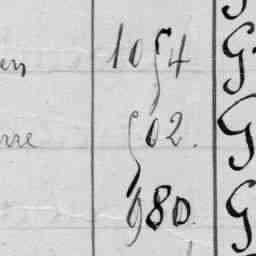 en 1054 G
rre 502. G
980. G